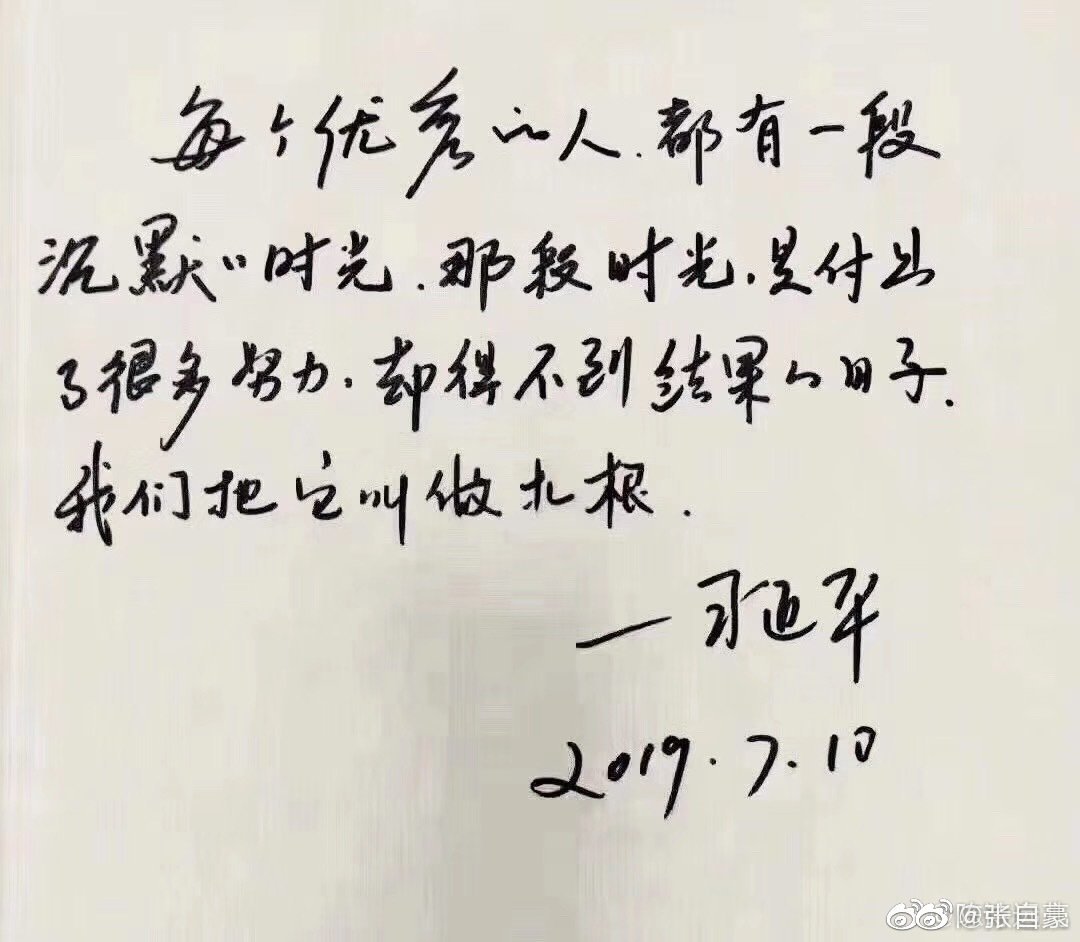 每个优秀的人.都有一段
沉默的时光.那段时光.是付出
了很多努力.却得不到结果的日子.
我们把它叫做扎根.
—习近平
2019.7.10
@陈张自蕓